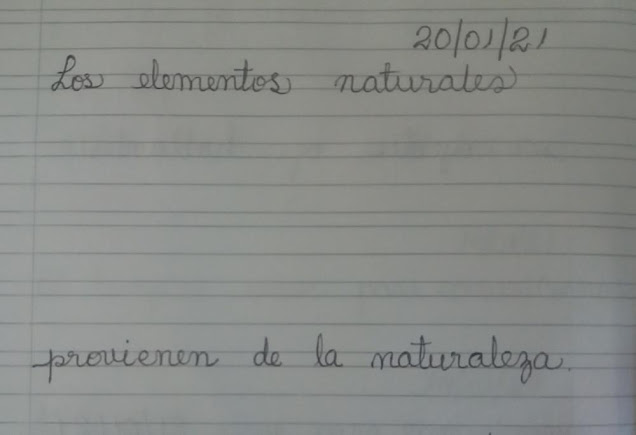 20/01/21
Los elementos naturales
provienen de la naturaleza.